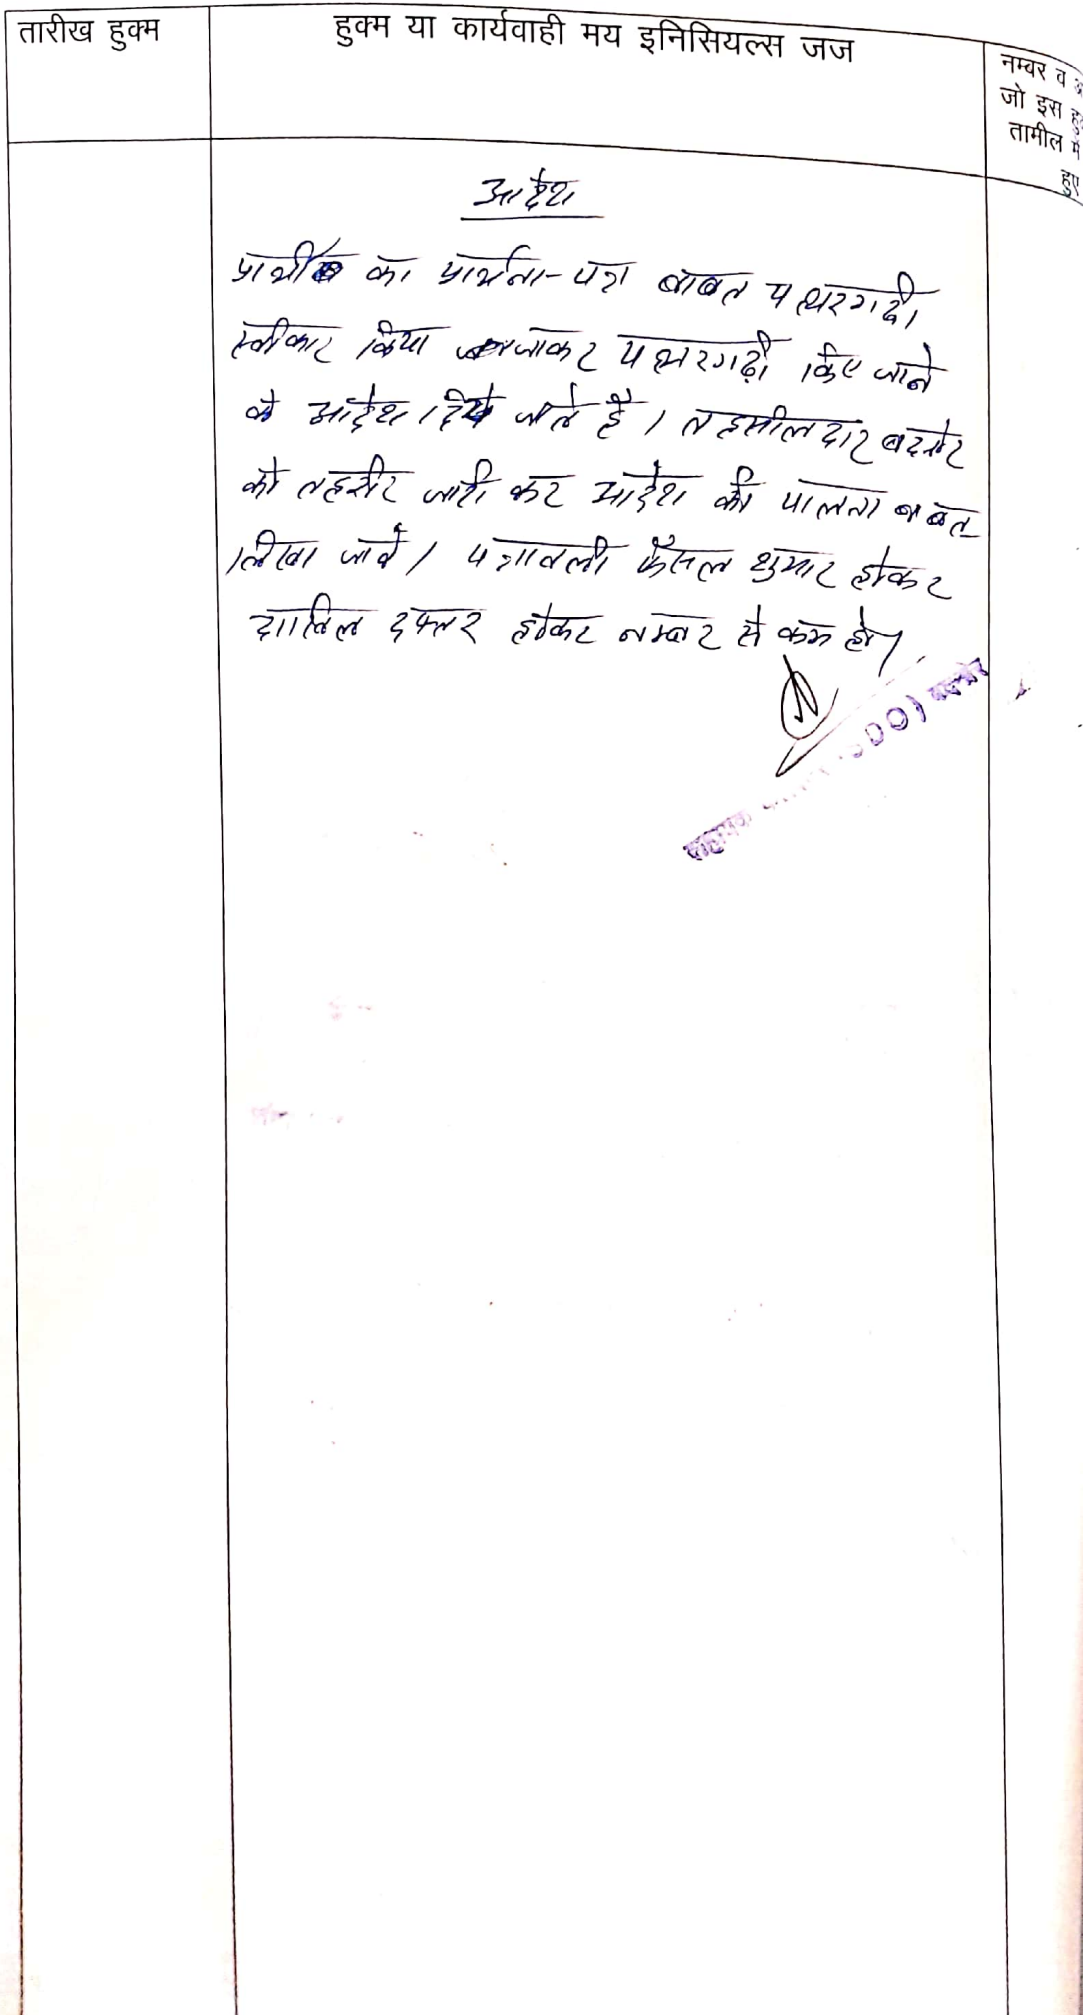 तारीख हुक्म
हुक्म या कार्यवाही मय इनिसियल्स जज
नम्बर व
जो इस
तामील में
हुए
आदेश
प्रार्थी का प्रार्थना-पत्र बाबत पत्थरगढी
स्वीकार किया जाकर पत्थरगढी किए जाने
के आदेश दिये जाते है। तहसीलदार बदनोर
को तहरीर जारी कर आदेश की पालना बाबत
लिखा जावे। पत्रावली फैसल शुमार होकर
दाखिल दफ्तर होकर नम्बर से कम हो।
सहायक DO) बदनोर